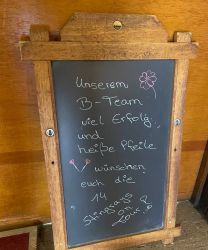 Unserem
B-Team
viel Erfolg
und
heiße Pfeile
wünschen
euch die
14
on